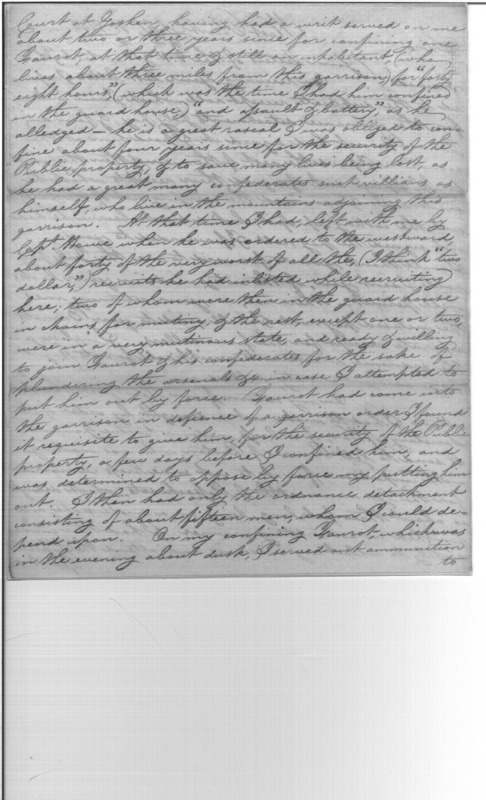 Court at Goshen, having had a writ served on me
about two or three years since for confining one
Faurot, at that time & still an inhabitant, (who
lives about three miles from this garrison,) for "forty
eight hours," (which was the time I had him confined
in the guard house,) "and assault & battery," as he
alledged — he is a great rascal I was obliged to con-
fine about four years since for the security of the
Public property, & to save many lives being lost, as
he had a great many confederates such villians as
himself, who live in the mountains adjoining this
garrison. At that time I had, left with me by
Capt. when he was ordered to the westward,
about forty of the very worst of all the, (I think "two
dollar,") recruits he had inlisted while recruiting
here; two of whom were then in the guard house
in chains for mutiny, & the rest, except one or two,
were in a very mutinous state, and ready & willing
to join Faurot & his confederates for the sake of
plundering the arsenals &c in case I attempted to
put him out by force. Faurot had come into
the garrison in defiance of a garrison order I found
it requisite to give him, for the security of the Public
property, a few days before I confined him, and
was determined to oppose by force my putting him
out. I then had only the ordnance detachment
consisting of about fifteen men, whom I could de-
pend upon. On my confining Faurot, which was
in the evening about dusk, I served out ammunition
to